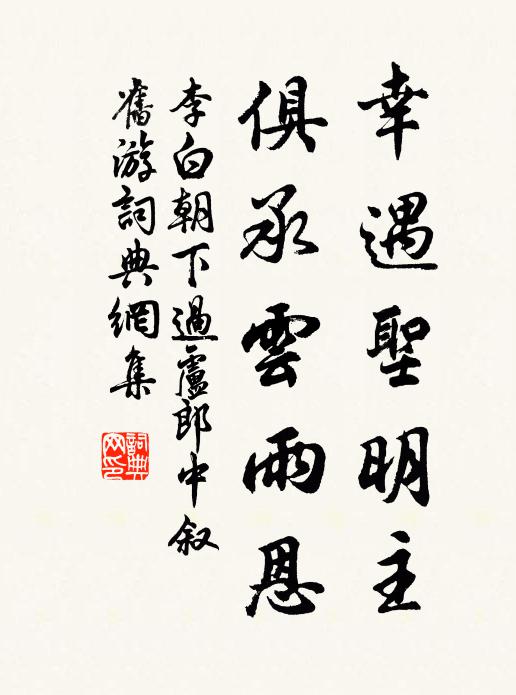 幸遇聖明主
俱承雲雨恩
李白朝下過盧郎中叙
舊游詞典網集
詞典
网印